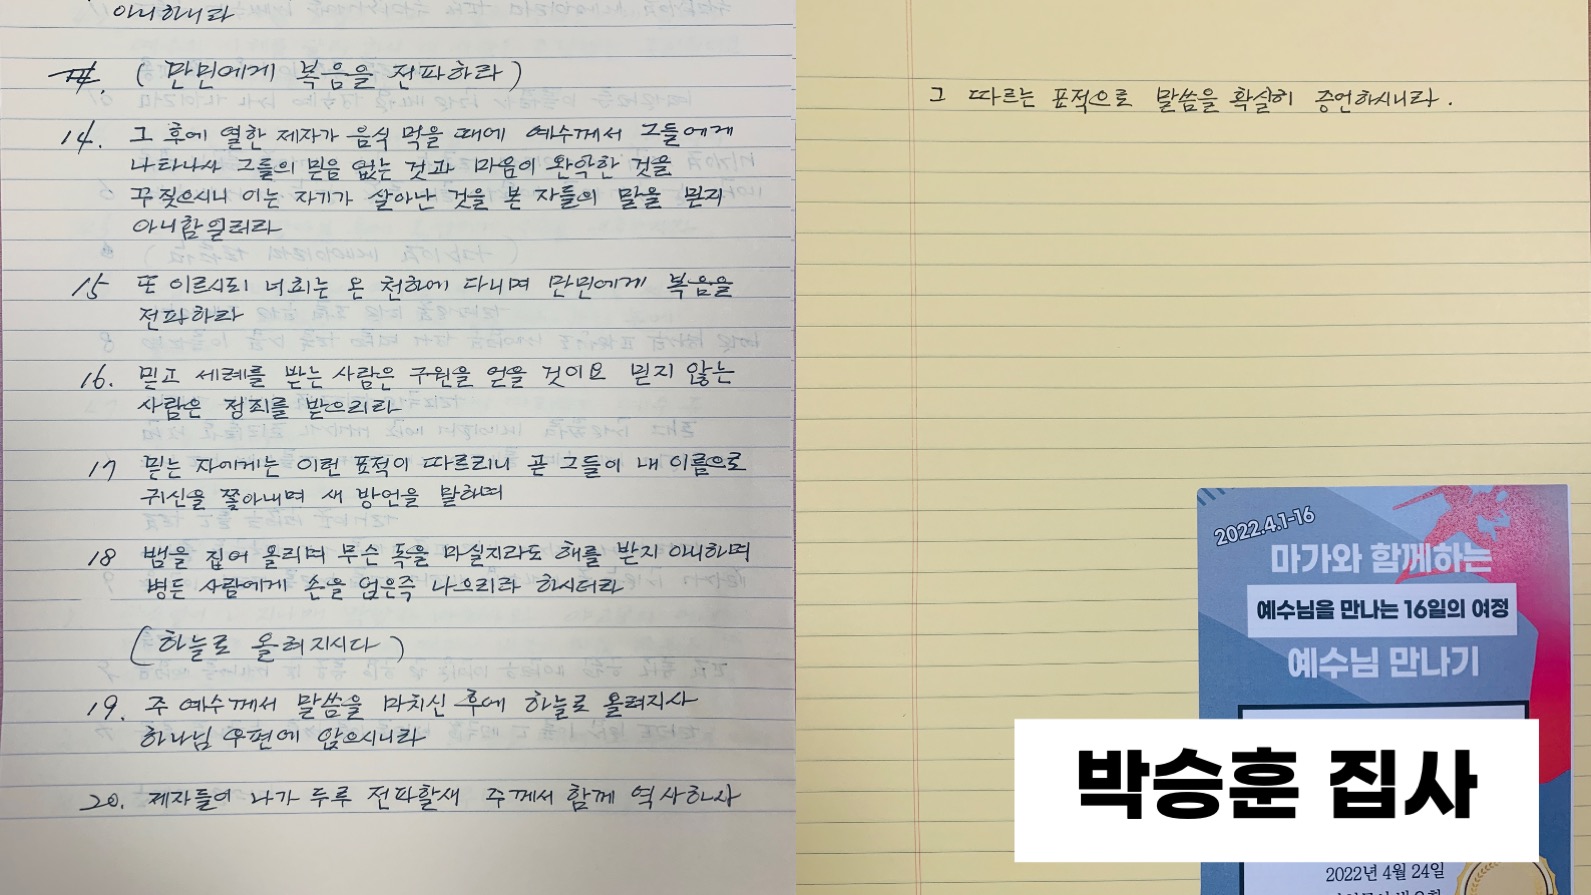 아니하니라
(만민에게 복음을 전파하라)
14. 그 후에 열한 제자가 음식 먹을 때에 예수께서 그들에게
나타나사 그들의 믿음 없는 것과 마음이 완악한 것을
꾸짖으시니 이는 자기가 살아난 것을 본 자들의 말을 믿지
아니함일러라
15 또 이르시되 너희는 온 천하에 다니며 만민에게 복음을
전파하라
16. 믿고 세례를 받는 사람은 구원을 얻을 것이요 믿지 않는
사람은 정죄를 받으리라
17 믿는 자에게는 이런 표적이 따르리니 곧 그들이 내 이름으로
귀신을 쫓아내며 새 방언을 말하며
18 뱀을 집어 올리며 무슨 독을 마실지라도 해를 받지 아니하며
병든 사람에게 손을 얹은즉 나으리라 하시더라
(하늘로 올려지시다)
19. 주 예수께서 말씀을 마치신 후에 하늘로 올려지사
하나님 우편에 앉으시니라
20. 제자들이 나가 두루 전파할새 주께서 함께 역사하사
그 따르는 표적으로 말씀을 확실히 증언하시니라.
2022.4.1-16
마가와 함께하는
예수님을 만나는 16일의 여정
예수님 만나기
박승훈 집사
2022년 4월 24일